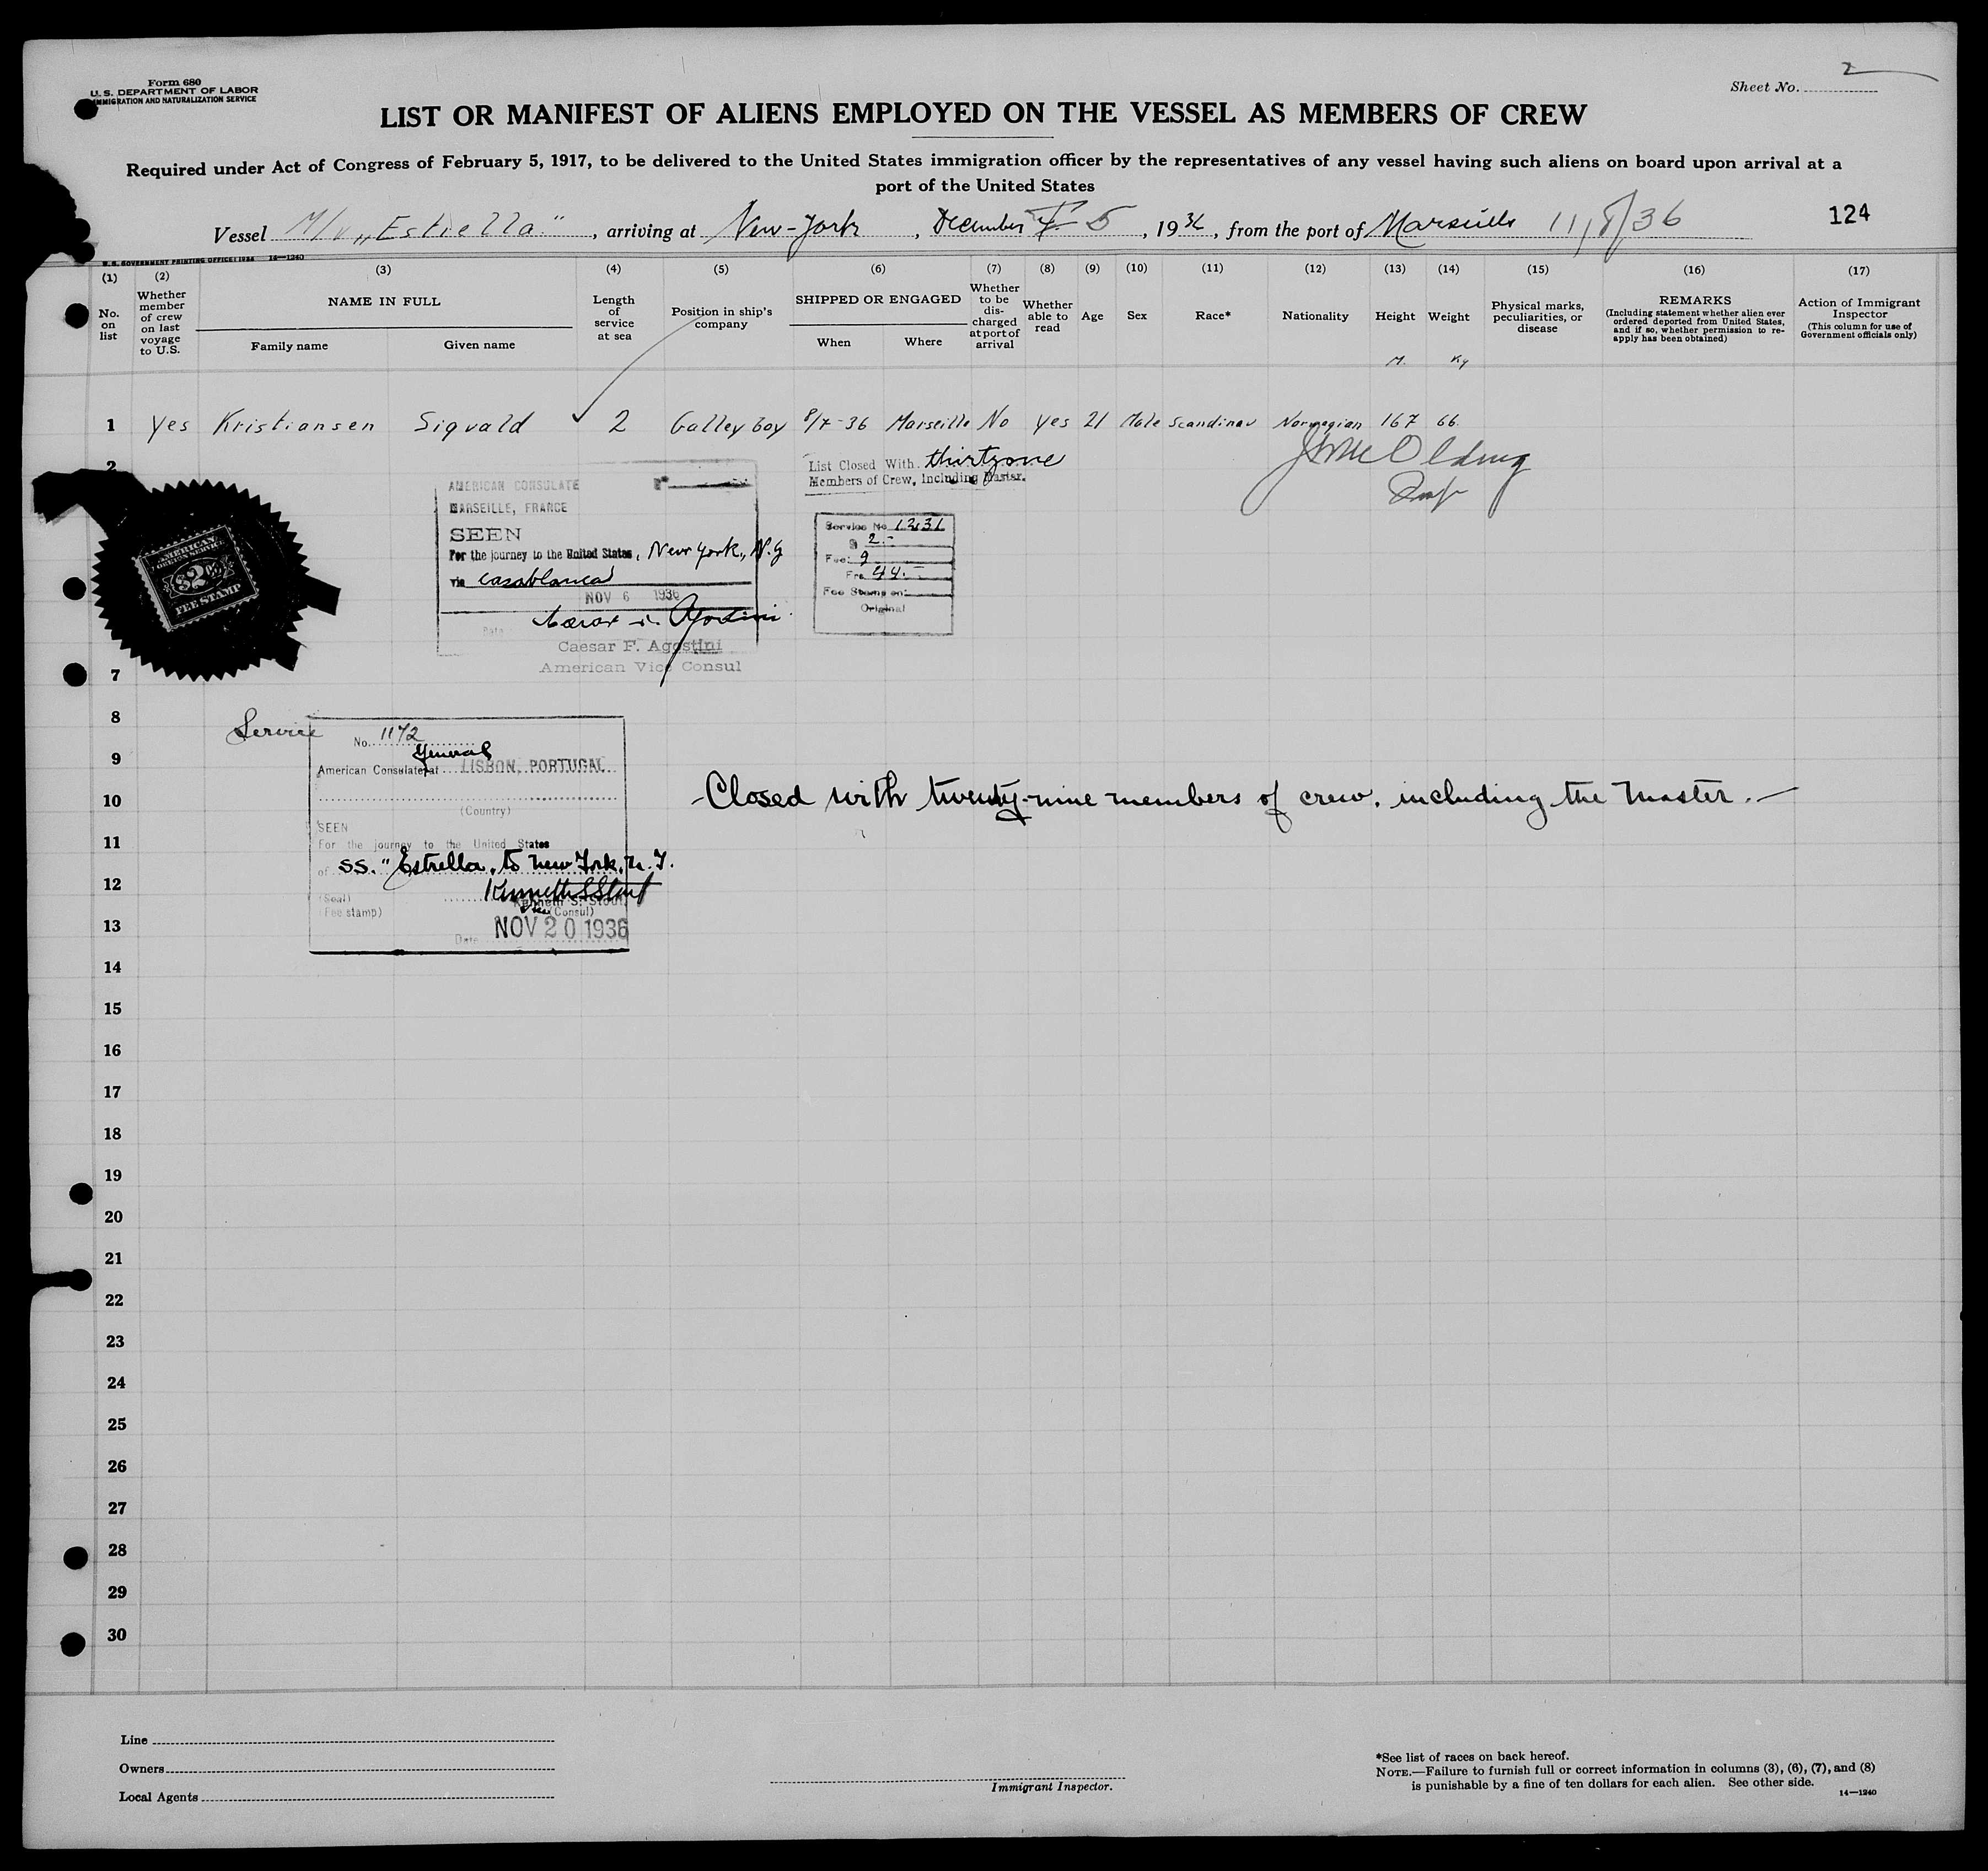 Form 680
U. S. DEPARTMENT OF LABOR
IMMIGRATION AND NATURALIZATION SERVICE
Sheet No. 2
LIST OR MANIFEST OF ALIENS EMPLOYED ON THE VESSEL AS MEMBERS OF CREW
Required under Act of Congress of February 5, 1917, to be delivered to the United States immigration officer by the representatives of any vessel having such aliens on board upon arrival at a
port of the United States
Vessel M/v „Estrella" , arriving at New-York , December 5 , 1936 , from the port of Marseille 11/8/36
124
U. S. GOVERNMENT PRINTING OFFICE: 1934 14—1240
(1) (2) (3) (4) (5) (6) (7) (8) (9) (10) (11) (12) (13) (14) (15) (16) (17)
No. on list
Whether member of crew on last voyage to U.S.
NAME IN FULL
Family name Given name
Length of service at sea
Position in ship's company
SHIPPED OR ENGAGED
When Where
Whether to be discharged at port of arrival
Whether able to read
Age
Sex
Race*
Nationality
Height
Weight
Physical marks, peculiarities, or disease
REMARKS
(Including statement whether alien ever ordered deported from United States, and if so, whether permission to re-apply has been obtained)
Action of Immigrant Inspector
(This column for use of Government officials only)
M. Kg
1 Yes Kristiansen Sigvald 2 Galley boy 8/7-36 Marseille No Yes 21 Male Scandinav Norwegian 167 66.
2
List Closed With thirtyone
Members of Crew, Including Master.
AMERICAN CONSULATE
MARSEILLE, FRANCE
SEEN
For the journey to the United States, New York, N.Y
via Casablanca
NOV 6 1936
Date
Caesar F. Agostini
American Vice Consul
Service No 1231
$ 2.-
Fee: 9
Frs 44.-
Fee Stamp on:
Original
AMERICAN
FOREIGN SERVICE
$2.00
FEE STAMP
7
8
Service No. 1172
9
American Consulate General at LISBON, PORTUGAL
10
(Country)
Closed with twenty-nine members of crew, including the Master.—
SEEN
11
For the journey to the United States
of SS. "Estrella, to New York, N. Y.
12
(Seal)
Kenneth S. Stout
(Fee stamp)
(Consul)
13
Date NOV 20 1936
14
15
16
17
18
19
20
21
22
23
24
25
26
27
28
29
30
Line
Owners
Local Agents
Immigrant Inspector.
*See list of races on back hereof.
NOTE.—Failure to furnish full or correct information in columns (3), (6), (7), and (8)
is punishable by a fine of ten dollars for each alien. See other side.
14—1240